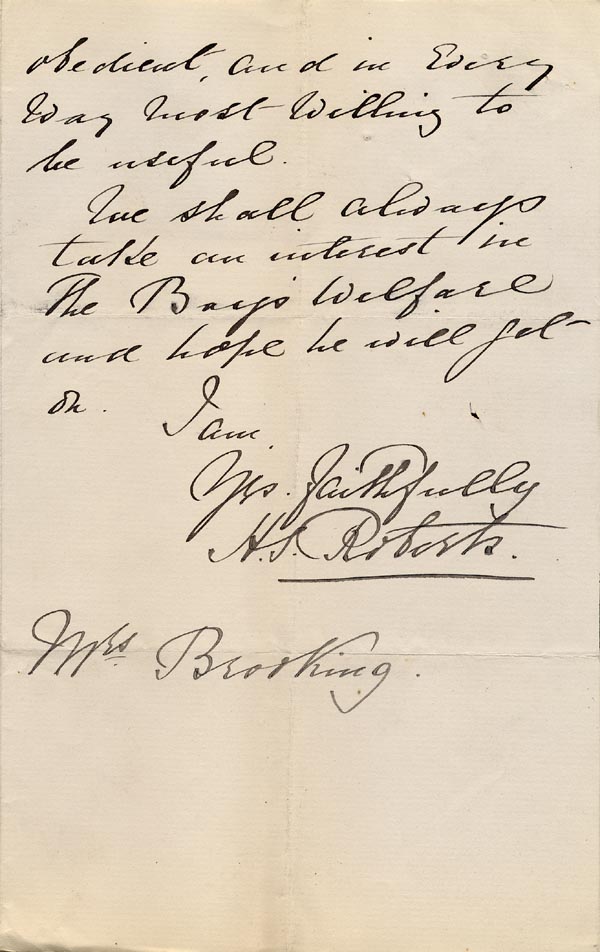 obedient, and in Every
Way most Willing to
be useful.
We shall always
take an interest in
The Boy's Welfare
and hope he will get
on. I am
Yrs. Faithfully
H.S. Roberts.
Mrs Brooking.